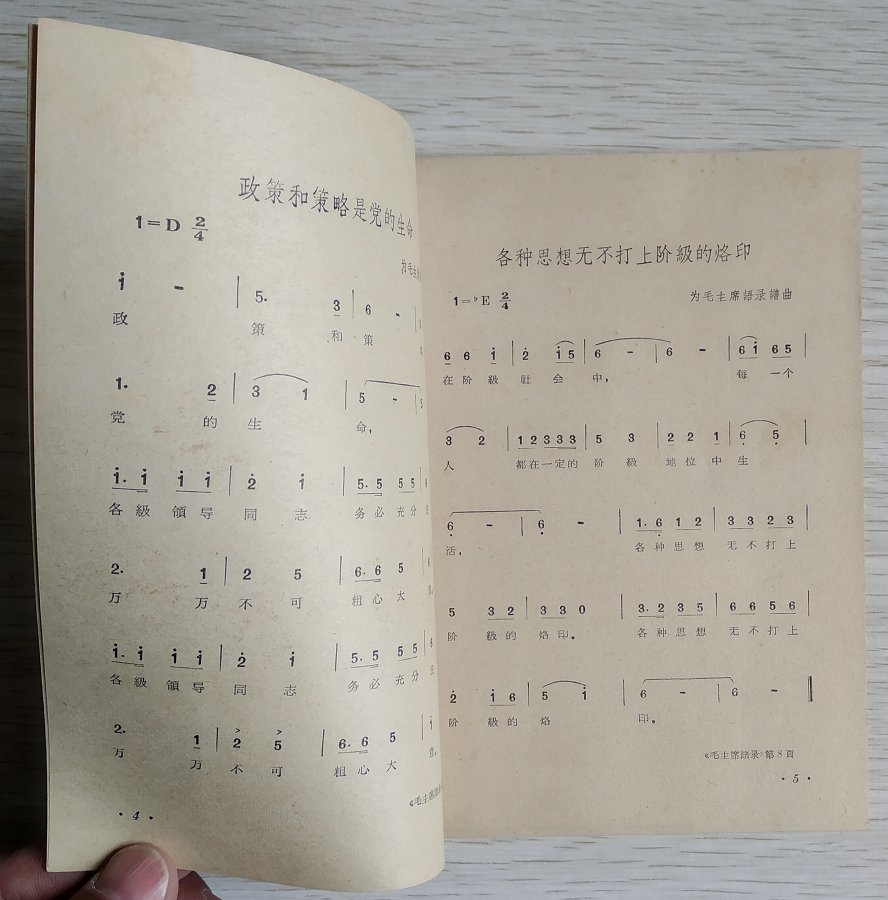 政策和策略是党的生命
1=D 2/4
为毛主
1 - | 5. 3 | 6 -
政 策 和 策
1. 2 | 3 1 | 5 - | 5
党 的 生 命，
1. 1 1 1 | 2 1 | 5. 5 5 5
各 級 領 导 同 志 务 必 充 分 注
2. 1 | 2 5 | 6. 6 5
万 万 不 可 粗 心 大
1. 1 1 1 | 2 1 | 5. 5 5 5
各 級 領 导 同 志 务 必 充 分 注
2. 1 | 2 5 | 6. 6 5
万 万 不 可 粗 心 大
《毛主席語
· 4 ·
各种思想无不打上阶級的烙印
1=♭E 2/4
为毛主席語录譜曲
6 6 1 | 2 1 5 | 6 - | 6 - | 6 1 6 5 |
在 阶 級 社 会 中， 每 一 个
3 2 | 1 2 3 3 3 | 5 3 | 2 2 1 | 6 5 |
人 都 在 一 定 的 阶 級 地 位 中 生
6 - | 6 - | 1. 6 1 2 | 3 3 2 3 |
活， 各 种 思 想 无 不 打 上
5 3 2 | 3 3 0 | 3. 2 3 5 | 6 6 5 6 |
阶 級 的 烙 印。 各 种 思 想 无 不 打 上
2 1 6 | 5 1 | 6 - | 6 - ‖
阶 級 的 烙 印。
《毛主席語录》第 8 頁
· 5 ·